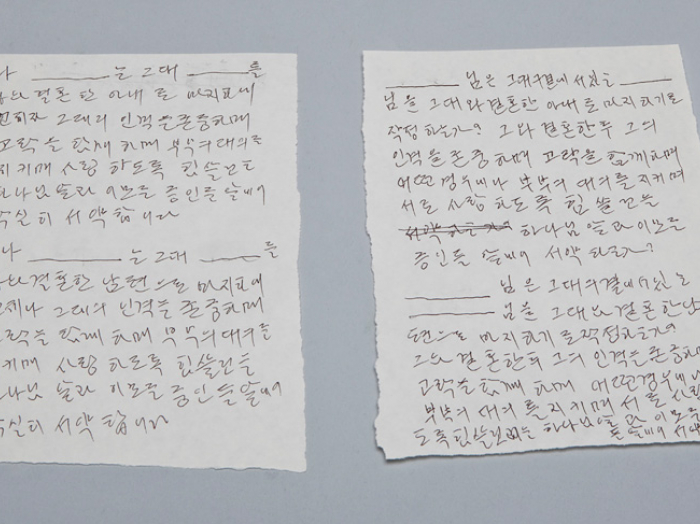 나 ______ 는 그대 ______ 를
나와 결혼한 아내로 마지하여
그대의 인격을 존중하며
고락을 함께하며 부부의 대의를
지키며 사랑하도록 힘쓸 것을
하나님 앞과 이 모든 증인들 앞에서
성실히 서약합니다
나 ______ 는 그대 ______ 를
나와 결혼한 남편으로 마지하여
언제나 그대의 인격을 존중하며
고락을 함께하며 부부의 대의를
지키며 사랑하도록 힘쓸 것을
하나님 앞과 이 모든 증인들 앞에서
성실히 서약합니다
______ 님은 그대 곁에 서있는 ______
님을 그대와 결혼한 아내로 마지하기로
작정하는가? 그와 결혼한 후 그의
인격을 존중하며 고락을 함께하며
어떤 경우에나 부부의 대의를 지키며
서로 사랑하도록 힘쓸 것을
서약하는가 하나님 앞과 이 모든
증인들 앞에서 서약하는가?
______ 님은 그대의 곁에 서있는
______ 님을 그대와 결혼한 남
편으로 마지하기로 작정하는가
그와 결혼한 후 그의 인격을 존중하며
고락을 함께하며 어떤 경우에나
부부의 대의를 지키며 서로 사랑하
도록 힘쓸 것을 하나님 앞과 이 모든 증인
들 앞에서 서약